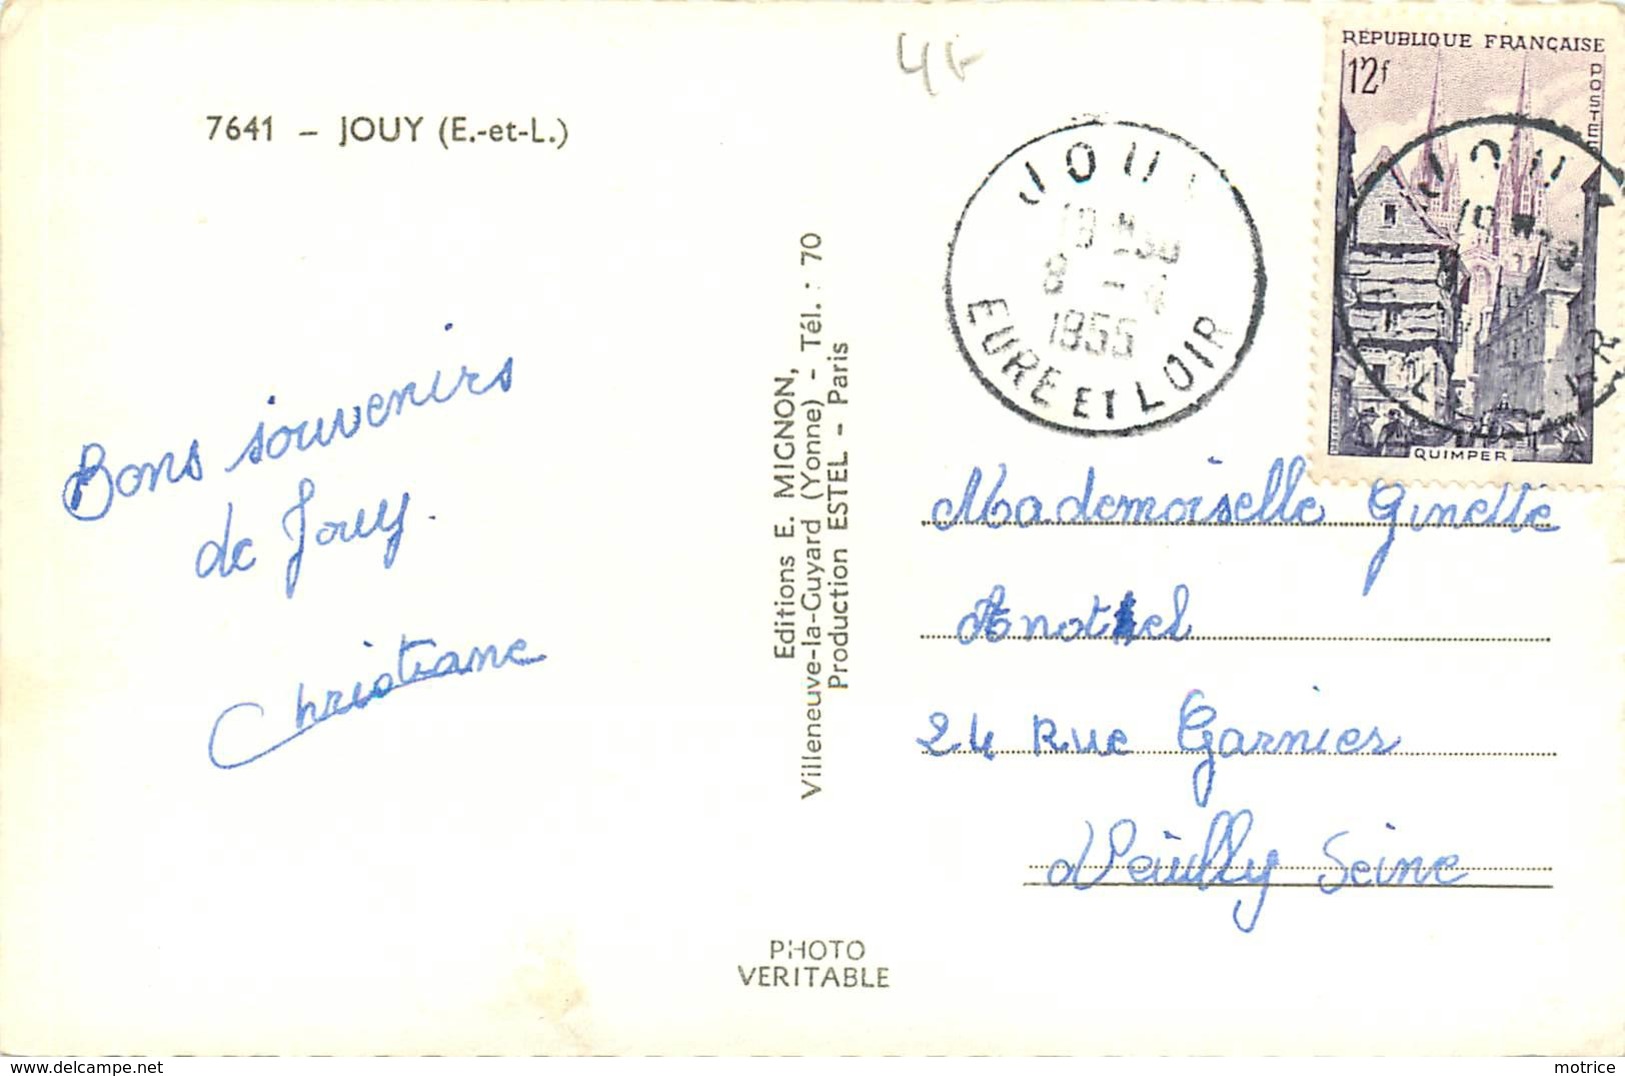 7641 – JOUY (E.-et-L.)
4F
RÉPUBLIQUE FRANÇAISE
12f
POSTES
QUIMPER
JOUY
18 H30
8 - 4
1955
EURE ET LOIR
Bons souvenirs
de Jouy.
Christiane
Editions E. MIGNON,
Villeneuve-la-Guyard (Yonne) - Tél. : 70
Production ESTEL - Paris
Mademoiselle Ginette
24 Rue Garnier
Neuilly Seine
PHOTO
VERITABLE
www.delcampe.net
motrice